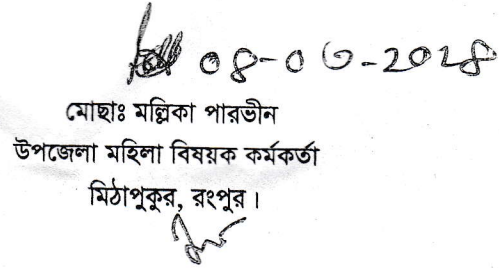 ০৪-০৩-২০২৪
মোছাঃ মল্লিকা পারভীন
উপজেলা মহিলা বিষয়ক কর্মকর্তা
মিঠাপুকুর, রংপুর।